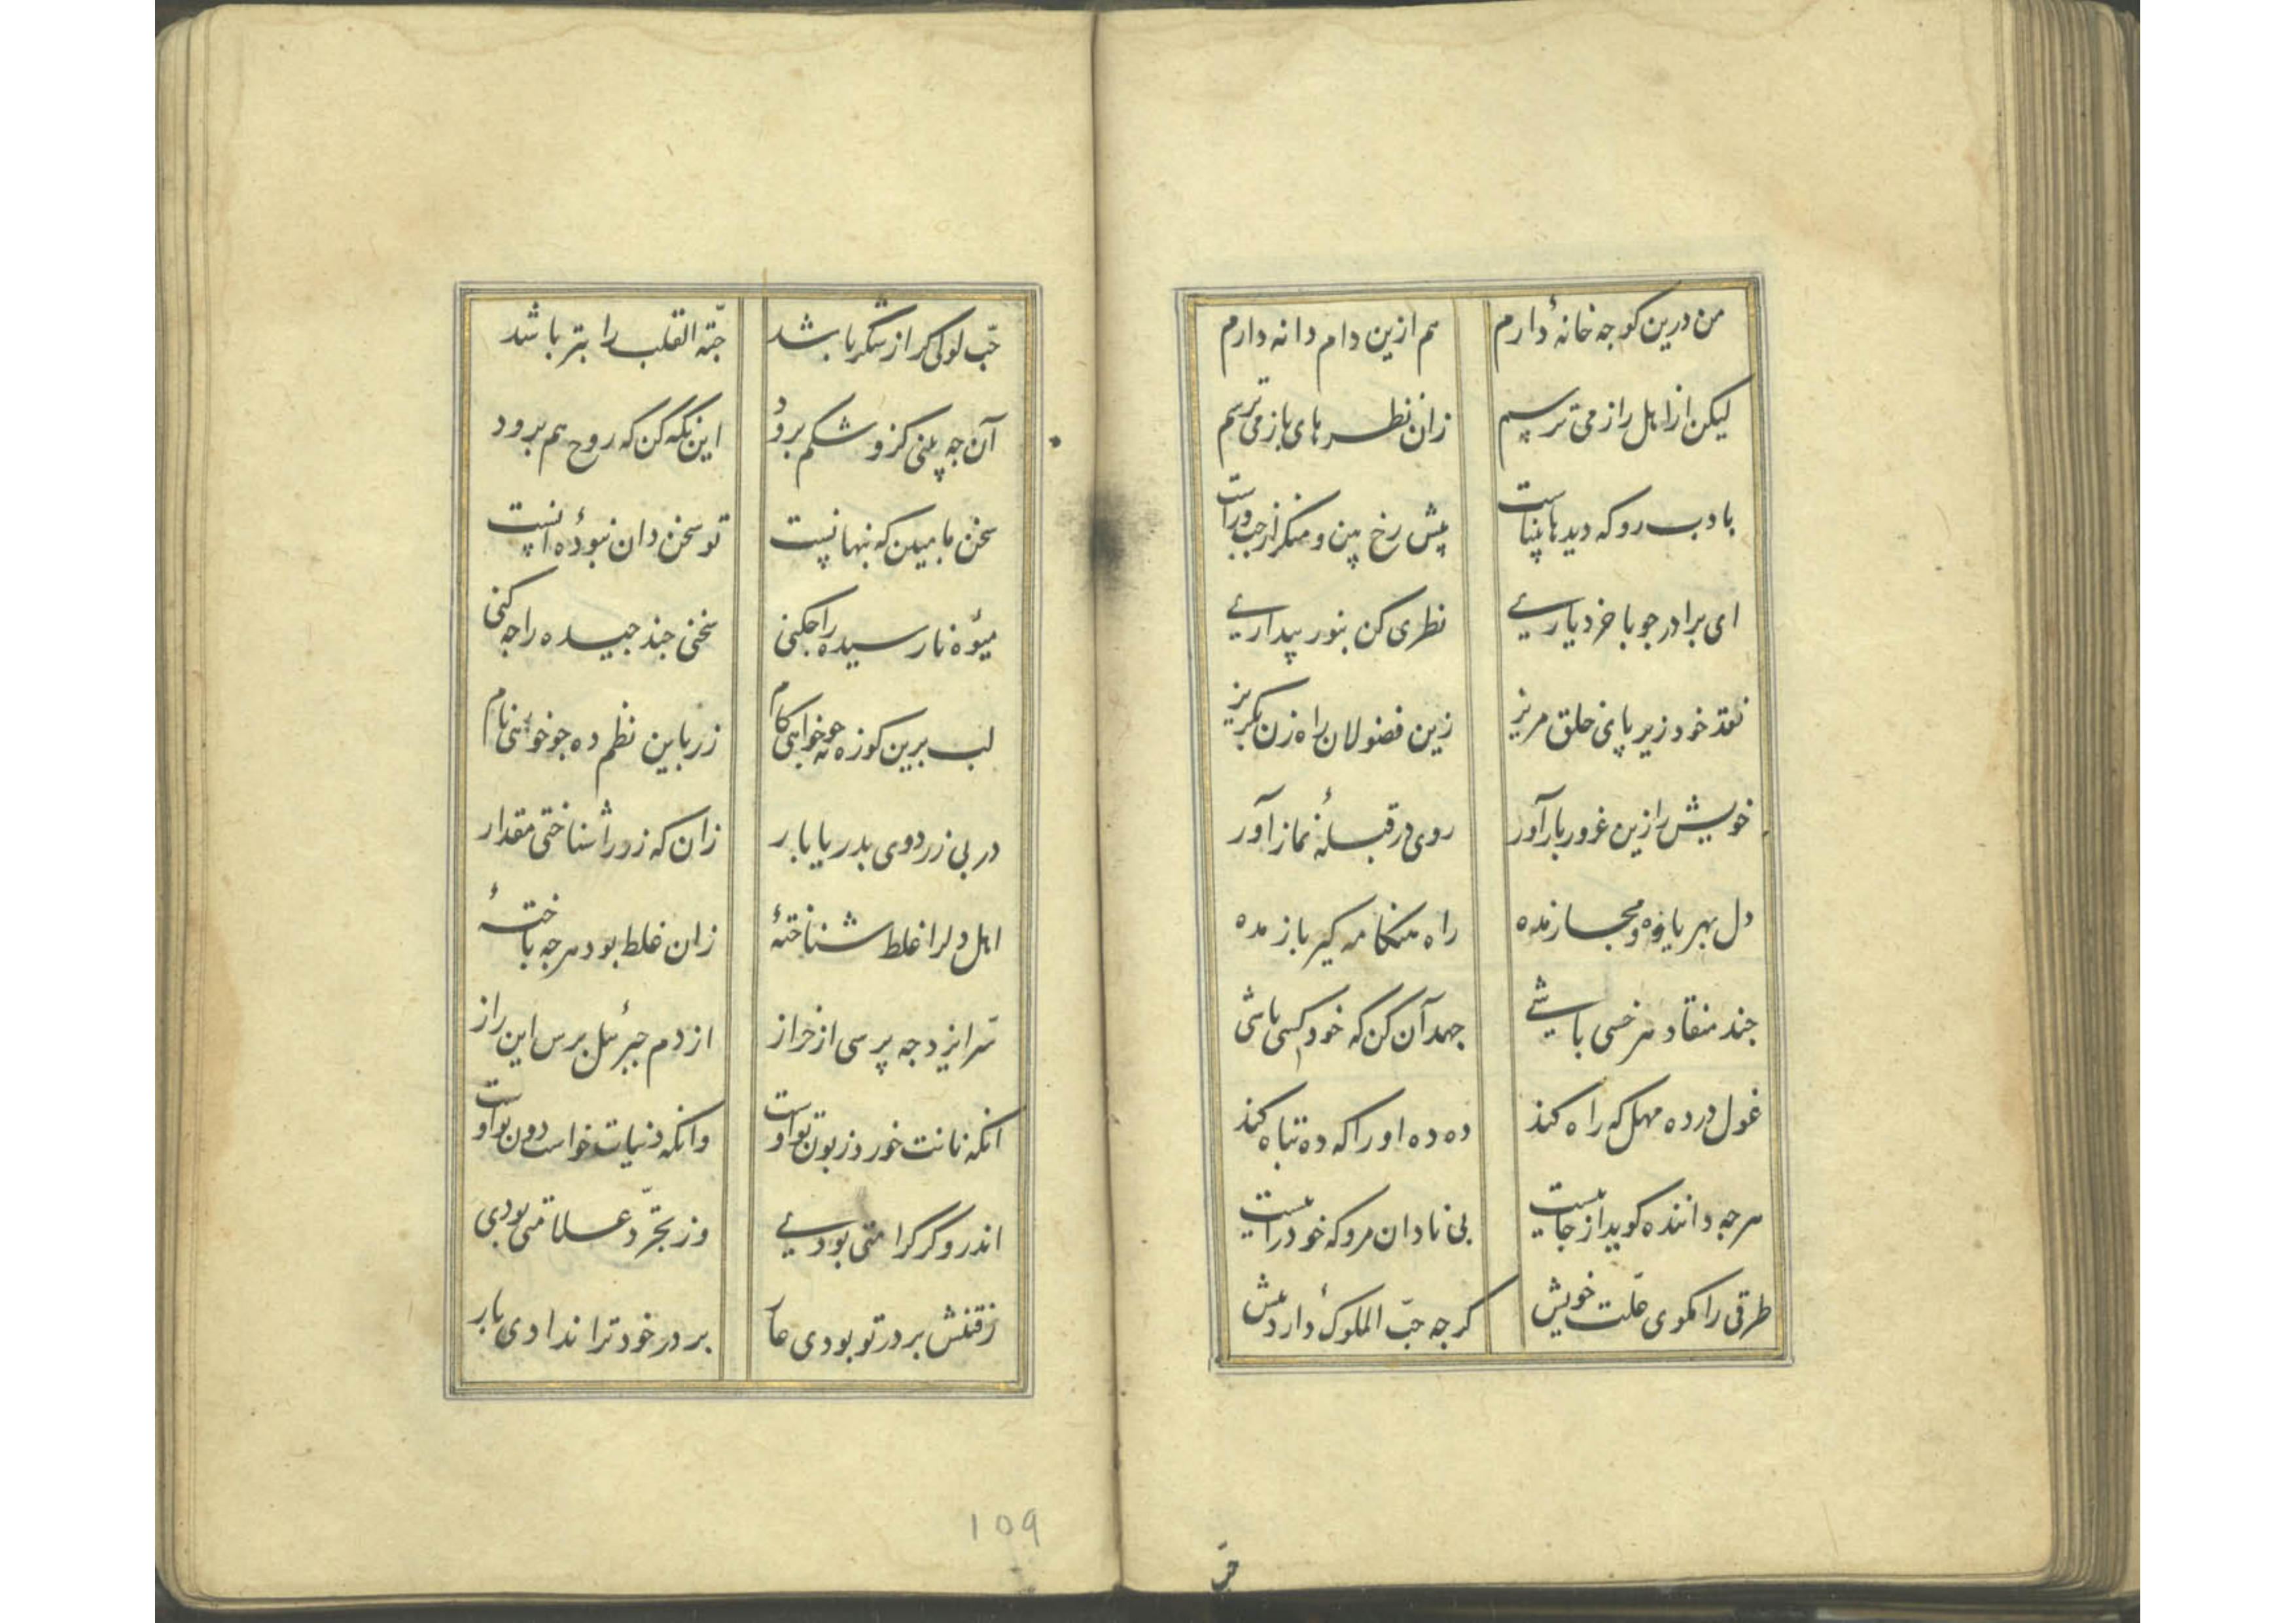 من درین کوجه خانهٔ دارم هم ازین دام دانه دارم
لیکن از اهل راز می ترسم زان نظرهای باز می ترسم
با ادب رو که دیدها بیناست پیش رخ بین و منکر از جب و راست
ای برادر جو با خرد یاریے نظری کن بنور بیداریے
نقد خود زیر پای خلق مریز زین فضولان راه زن بکریز
خویش را زین غرور بازآور روی در قبلهٔ نماز آور
دل بهر یافه و مجاز مده راه هنکامه کیر باز مده
جند منقاد هر خسی باشے جهد آن کن که خود کسی باشی
غول در ده مهل که راه کند ده ده او را که ده تباه کند
هرجه داننده کوید از جاییست بی نادان مرو که خودراییست
طرقی را مکوی علت خویش کرجه حبّ الملوک دارد بیش
حبّ
حبّ لوکی کر از شکر باشد جبّة القلب را بتر باشد
آن جه بینی کزو شکم برود این نکه کن که روح هم برود
سخن ما مبین که بنهانیست تو سخن دان نبودهٔ انیست
میوهٔ نارسیده را جکنی سخنی جند جیده را جه کنی
لب برین کوزه نه جو خواهی کام زر باین نظم ده جو خواهی نام
در بی زر دوی بدریا بار زان که زر را شناختی مقدار
اهل دل را غلط شناختهٔ زان غلط بود هرجه باختهٔ
سرّ ایزد جه برسی از خراز از دم جبرئیل برس این راز
انکه نانت خورد زبون تو اوست وانکه دنیات خواست دون تو اوست
اندرو کر کرامتی بودیے وز تجرّد علامتی بودی
رفتنش بر در تو بودی عار بر در خود ترا ندادی بار
109